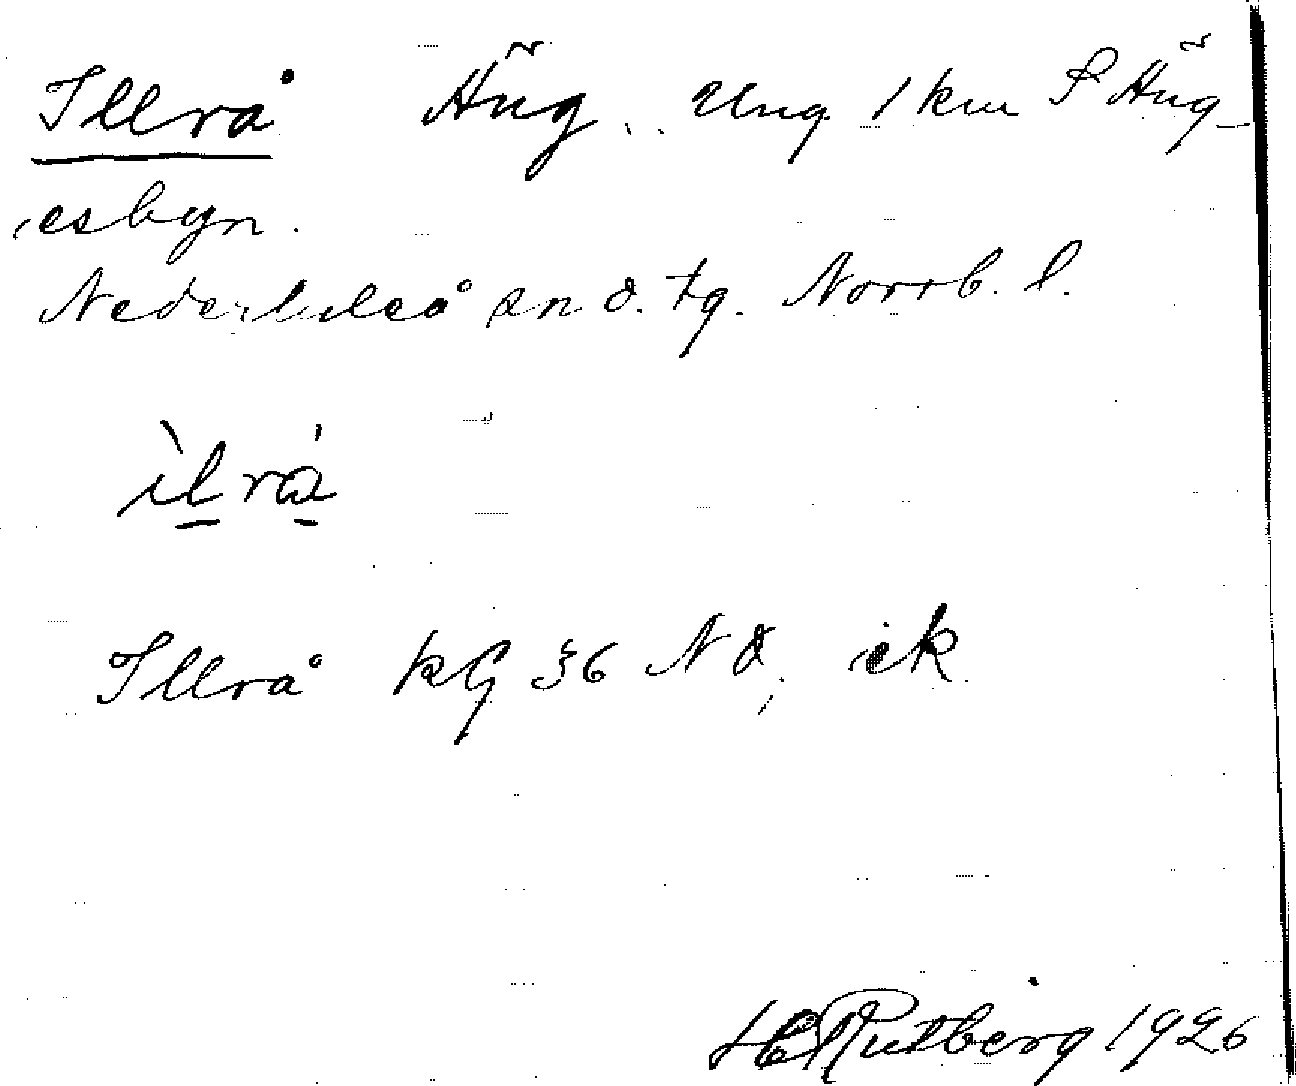 Illrå Häg. Ung 1 km S Häg-
esbyn.
Nederluleå sn ö. tg. Norrb. l.
ìlrå
Illrå kG 36 NO, ek
HRutberg 1926